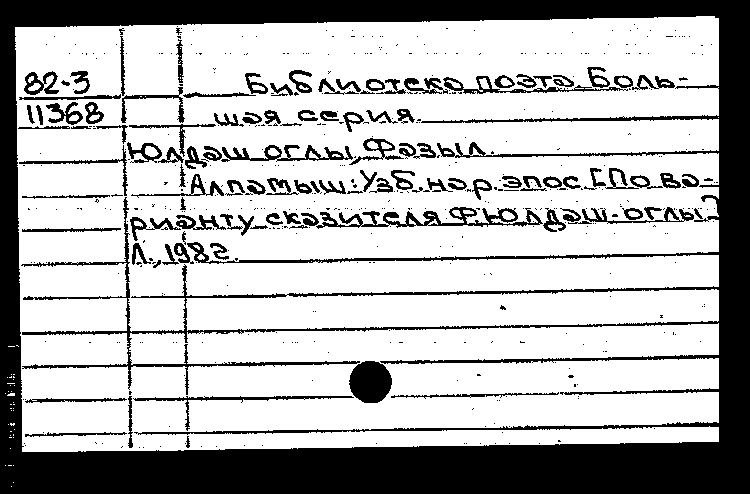 82-3 Библиотека поэта. Боль-
11368 шая серия.
Юлдаш оглы, Фазыл.
Алпамыш: Узб. нар. эпос [По ва-
рианту сказителя Ф. Юлдаш-оглы]
Л., 1982.